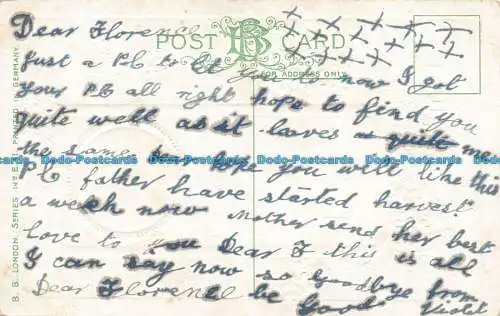 Dear Florence
POST CARD
FOR ADDRESS ONLY
Just a PC to let you to now I got
your PC all right hope to find you
quite well as it leaves me
the same hope you will like this
PC father have started harvest
a week now Mother send her best
love to you Dear F this is all
I can say now so Goodbye from
Dear Florence be Good Violet
B. B. LONDON. SERIES N° E PRINTED IN GERMANY.
Dodo-Postcards Dodo-Postcards Dodo-Postcards Dodo-Postcards Dodo-Postcards